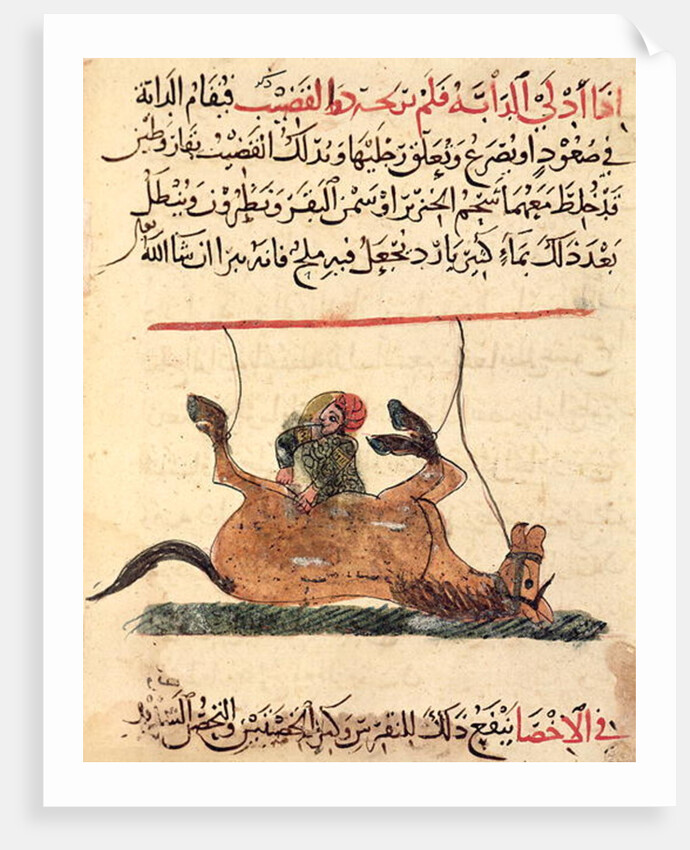 اذا أدلي الدابة فلم يرجعه دوا القضيب ذكر فيقام الدابة
في صعود او يصرع وتعلق رجليها ويدلك القضيب بقار وطين
قد خلط معهما شحم الخنزير او سمن البقر ونطرون ويبطل
بعد ذلك بماء كثير بارد يجعل فيه ملح فانه يبرا ان شا الله تعالى
في الاخصا ينفع ذلك للنقرس وكبر الخصيتين والنخس